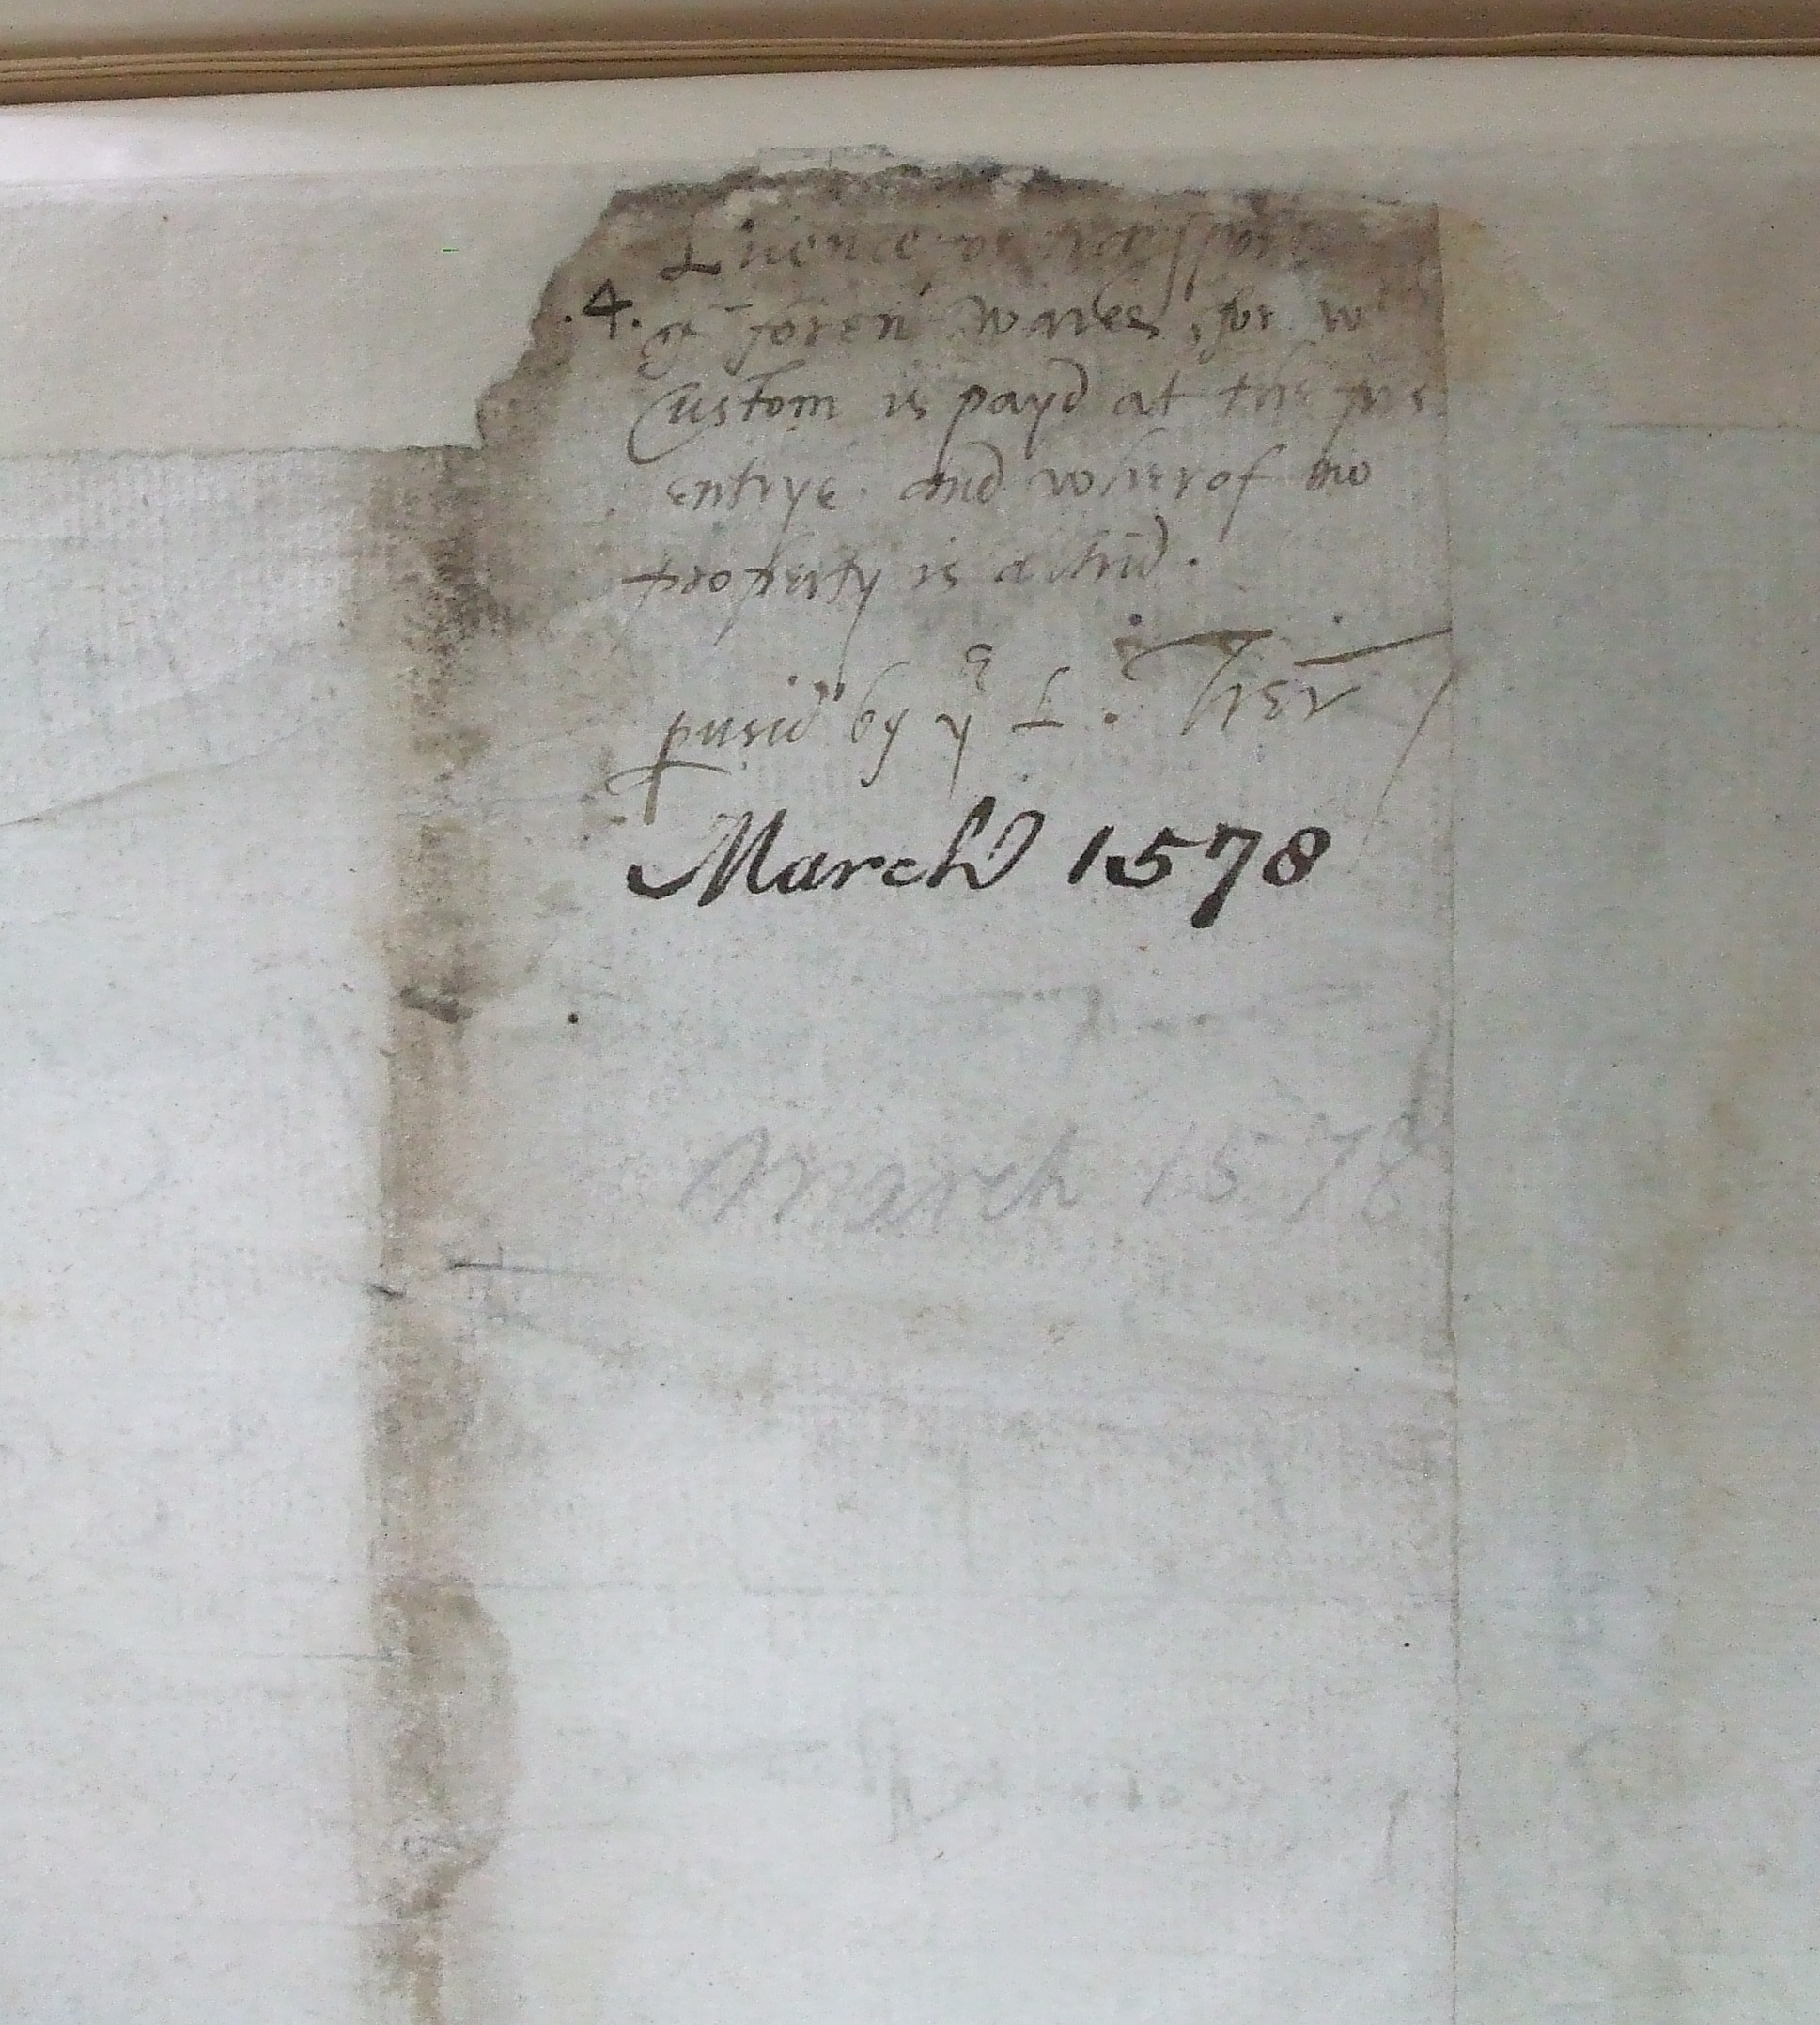 Licence to transport
.4. of foren wares, for wch
Custom is payd at the
entrye. and wherof no
property is altrid.
pused by ye L. Trer
March 1578
March 1578